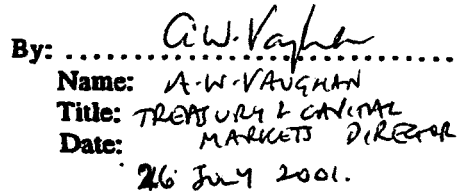 By: A.W. Vaughan
Name: A.W. VAUGHAN
Title: TREASURY & CAPITAL
Date: MARKETS DIRECTOR
26 July 2001.